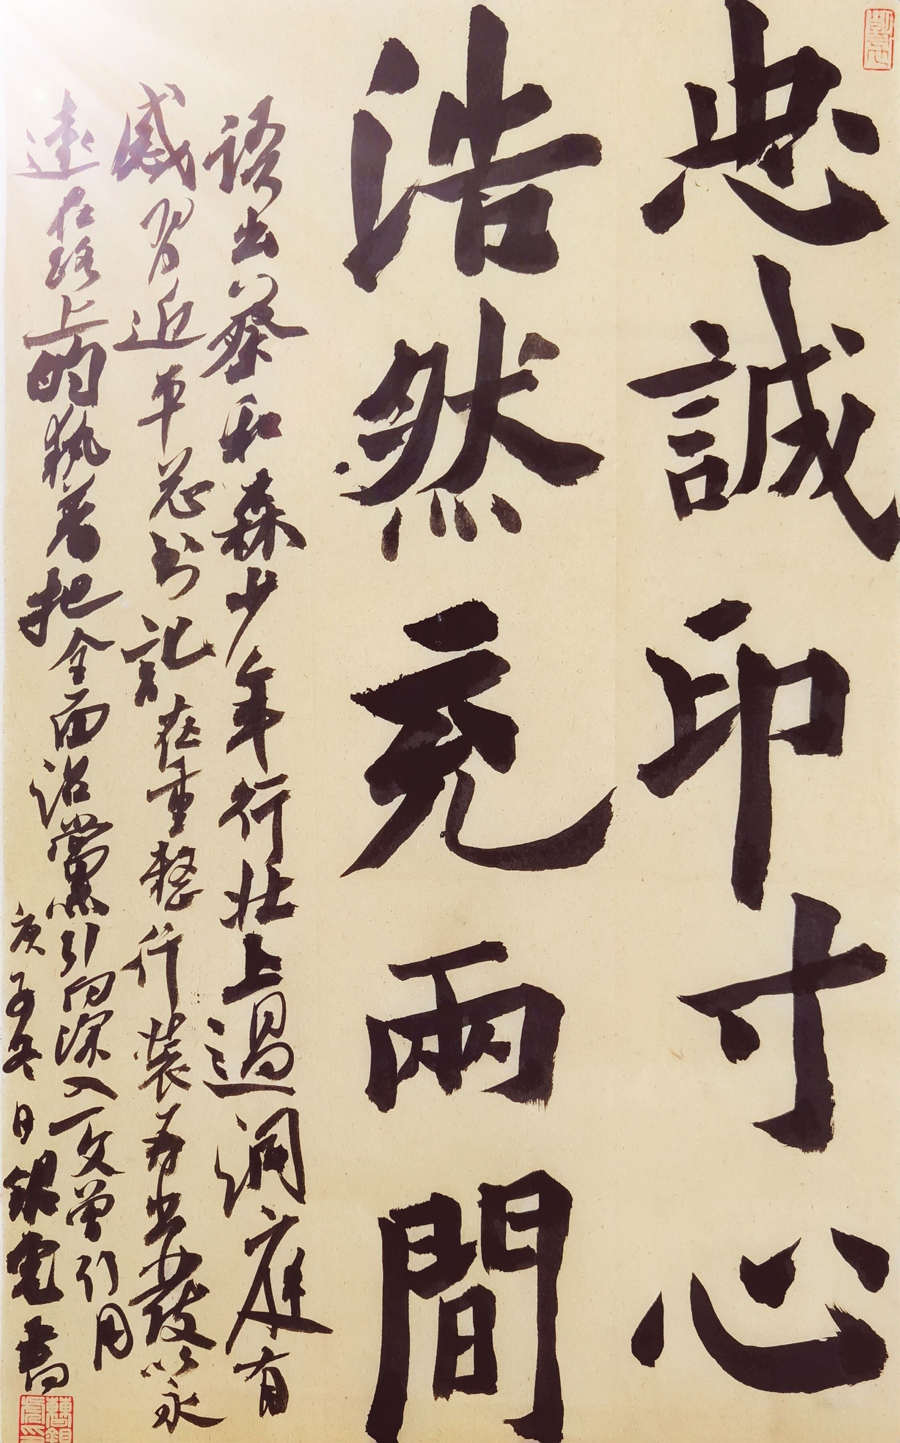 忠誠印寸心
浩然充兩間
語出蔡和森少年行壯上過洞庭有
感習近平总书記在重整行裝再出發以永
遠在路上的執着把全面治黨引向深入一文曾引用
庚子冬日銀書